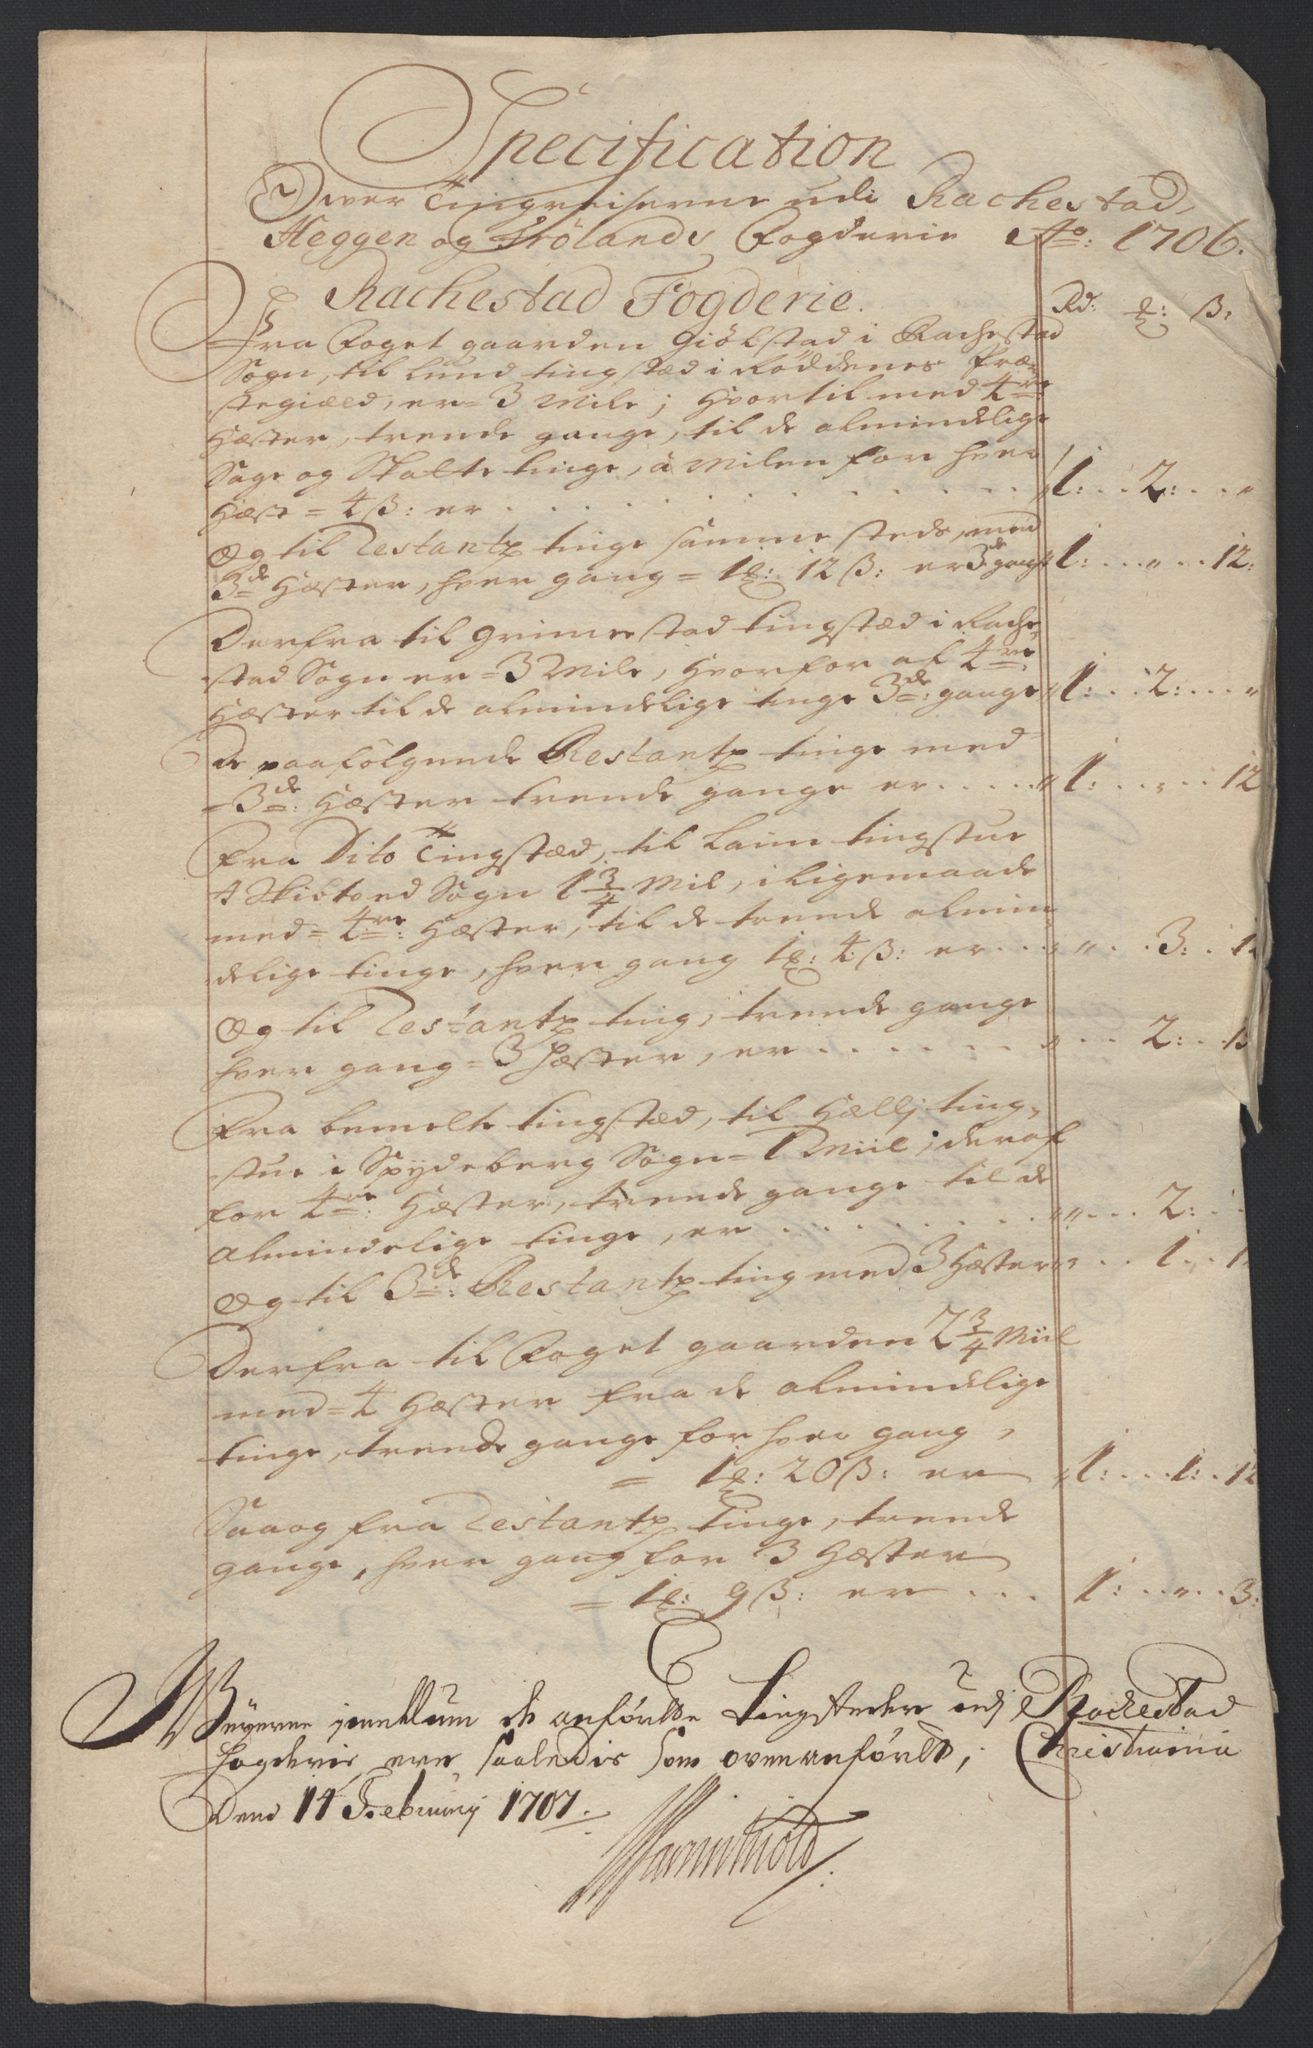 Specification
Over Tingreiserne udi Rachestad,
Heggen og Frølands Fogderie Ao: 1706.
Rachestad Fogderie. Rd: ƶ: β:
Fra Foget gaarden Giölstad i Rachestad
Sogn, til Lund tingstæd i Röddenes Præ-
stegiæld, er = 3 Mile; Hvortil med 4re
Hæster, trende gange, til de almindelige
Sage og Skatte tinge, à Milen for hver
Hæst = 4 β: er . . . . 1: . . 2: . . „
Og til Restantz tinge samme steds, med
3de Hæster, hver gang = 1ƶ: 12 β: er 3de gang 1: . . „ . . 12:
Derfra til Grimestad tingstæd i Rache-
stad Sogn er = 3 Mile, Hvorfor af 4re
Hæster til de almindelige tinge 3de: gange „ 1: . . 2: . . „
De paafølgende Restantz tinge med
= 3de: Hæster trende gange er . . . . „ 1: . . „ . . 12
Fra Dito Tingstæd, til Laim tingstue
i Skibtved Sogn 1 3/4 Mil, i ligemaade
med = 4re: Hæster, til de trende almin-
delige tinge, hver gang 1ƶ: 4 β: er . . „ „ . . 3: . . 12
Og til Restantz ting, trende gange
hver gang = 3 Hæster, er . . . . . . „ . . 2: . . 15
Fra bemelte tingstæd, til Hællj ting-
stue i Spydeberg Sogn = 1 Miil; deraf
for 4re: Hæster, trende gange til de
almindelige tinge, er . . . . . . . „ „ . . 2: . .
Og til 3de: Restantz ting med 3 Hæster „ . . 1 . . 1
Derfra til Foget gaarden 2 3/4 Miil
med = 4 Hæster fra de almindelige
tinge, trende gange for hver gang,
= 1ƶ: 20 β: er „ 1: . . 1: . . 12
Saa og fra Restantz tinge, trende
gange, hver gang for 3 Hæster
= 1ƶ: 9 β: er . . . 1: . . „ . . 3:
Weyerne jmellum de anførdte Tingsteder udj Rachestad
Fogderie, ere saaledis som ovenanførdt, Christiania
Dend 14 Februarij 1707.